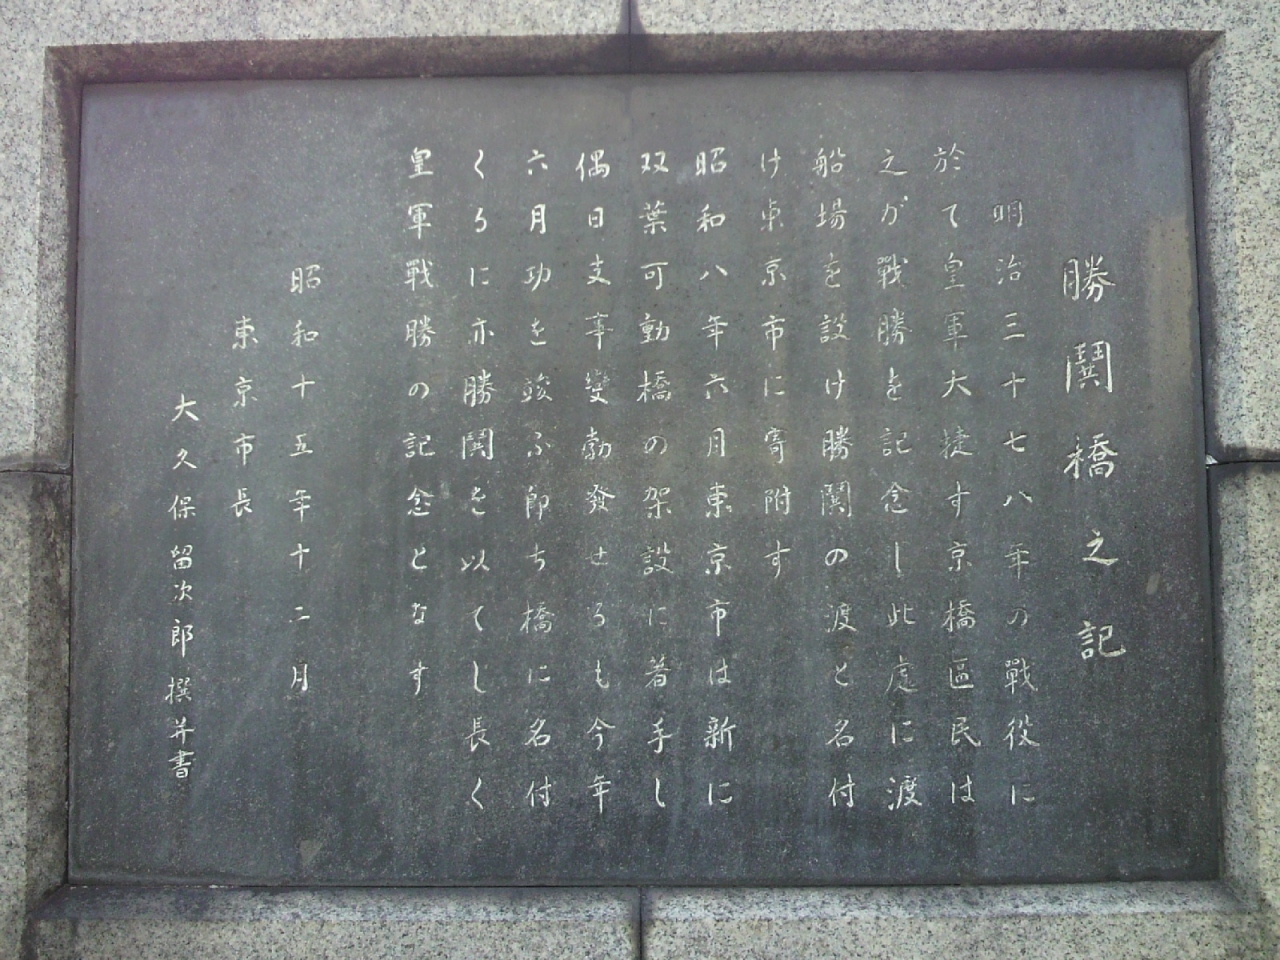 勝鬨橋之記
明治三十七八年の戰役に
於て皇軍大捷す京橋區民は
之が戰勝を記念し此處に渡
船場を設け勝鬨の渡と名付
け東京市に寄附す
昭和八年六月東京市は新に
双葉可動橋の架設に着手し
偶日支事變勃發せるも今年
六月功を竣ふ即ち橋に名付
くるに亦勝鬨を以てし長く
皇軍戰勝の記念となす
昭和十五年十二月
東京市長
大久保留次郎撰并書